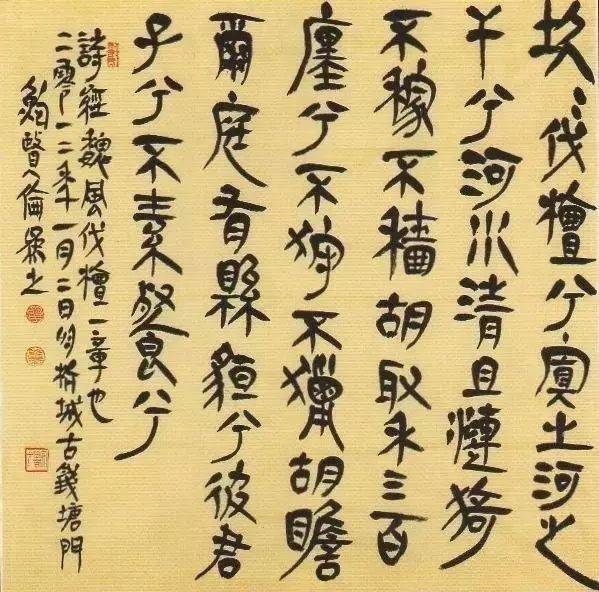 坎〻伐檀兮寘之河之
干兮河水清且漣猗
不稼不穡胡取禾三百
廛兮不狩不獵胡瞻
爾庭有縣貆兮彼君
子兮不素餐兮
詩經魏風伐檀一章也
二零一二年十一月二日於杭城古錢塘門
鮑賢倫之